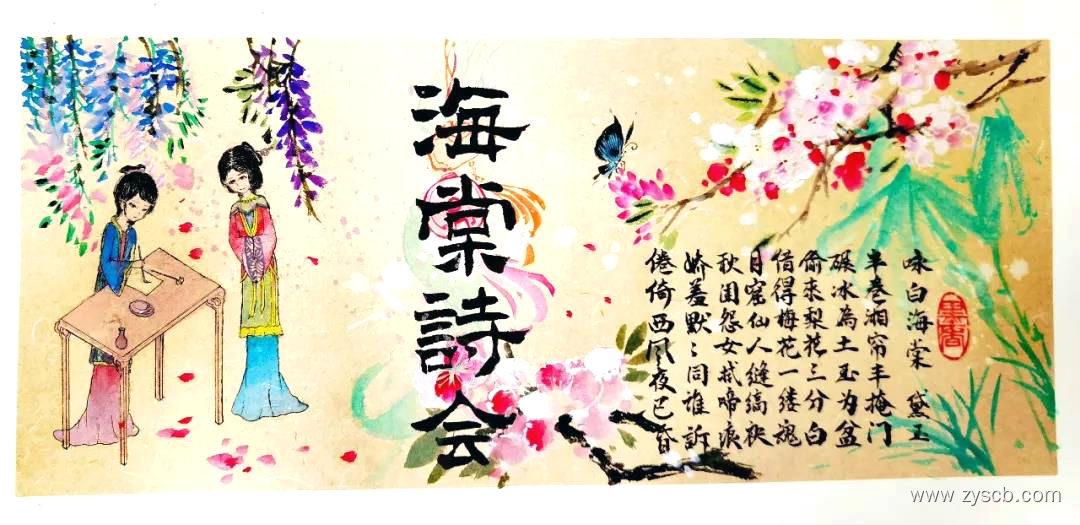 海棠詩会
咏白海棠 黛玉
半卷湘帘半掩门
碾冰為土玉为盆
偷来梨花三分白
借得梅花一缕魂
月窟仙人缝缟袂
秋闺怨女拭啼痕
娇羞默々同谁訴
倦倚西风夜已昏
www.zyscb.com